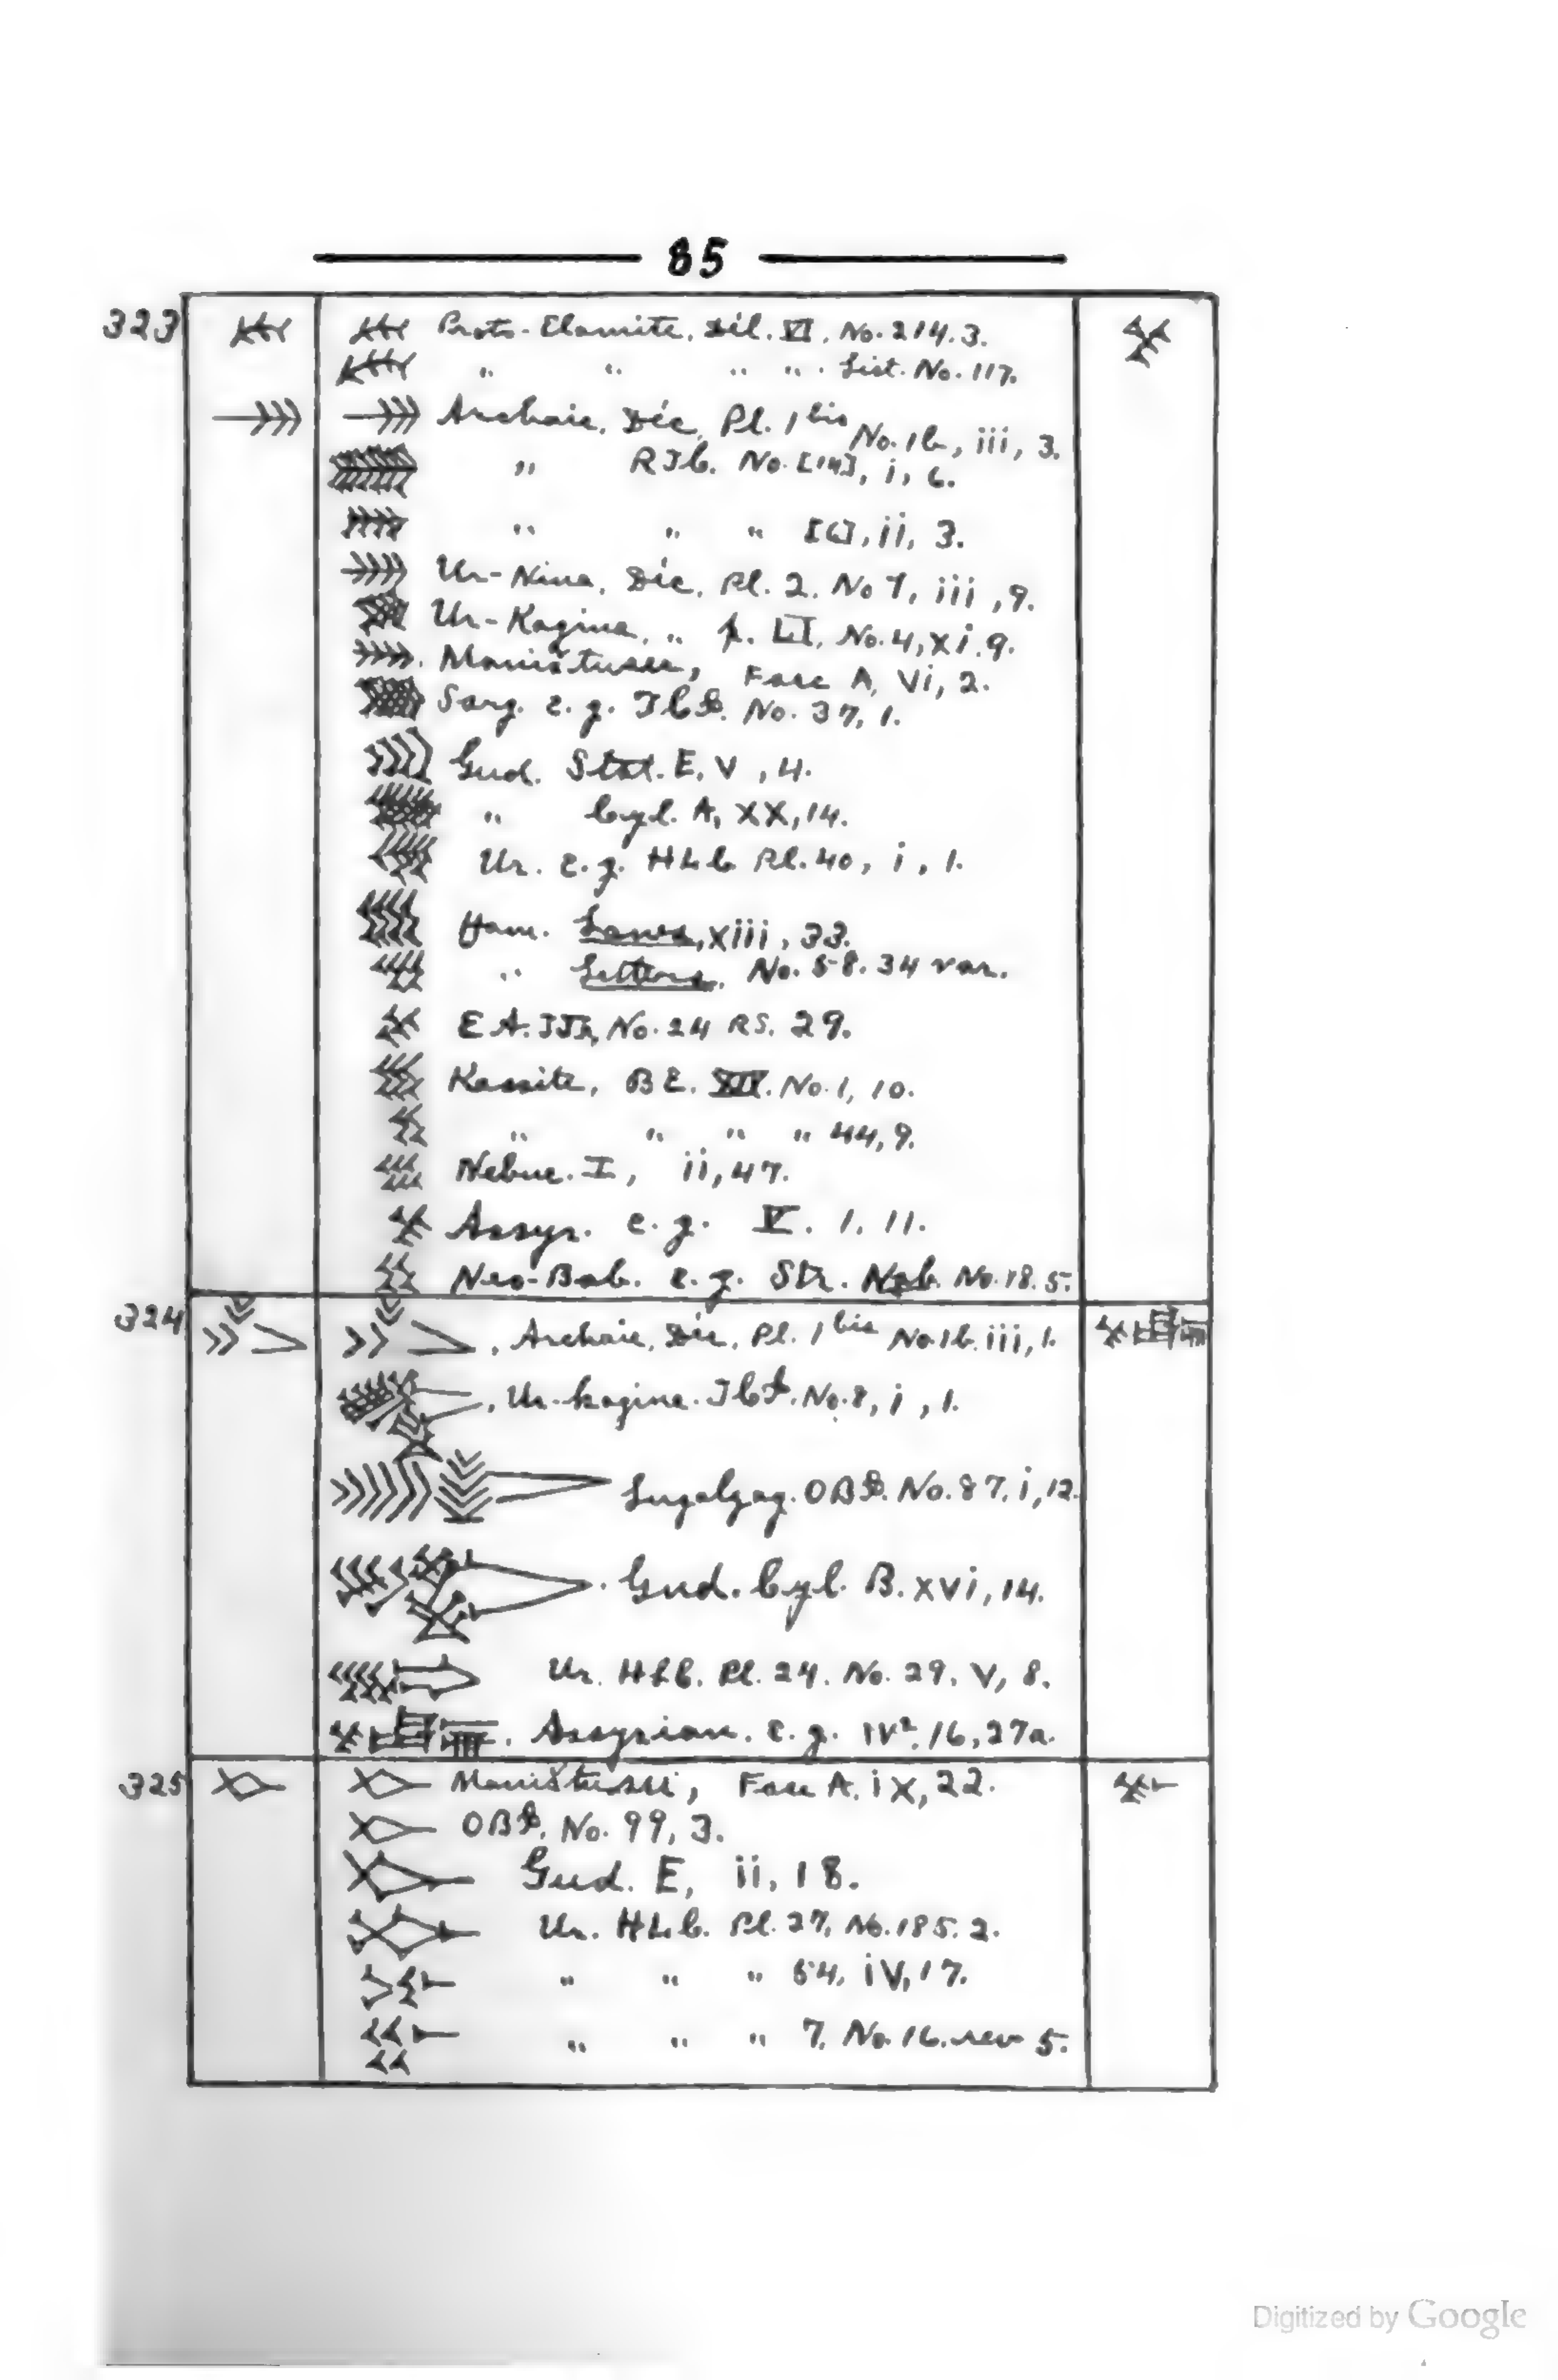 85
323 Proto-Elamite. Dél. VI. No. 214. 3.
" " " " . List. No. 117.
Archaic. Déc. Pl. 1bis No. 1b, iii, 3.
" RTC. No. [14], i, 6.
" " " [6], ii, 3.
Ur-Nina, Déc. Pl. 2. No 1, iii, 9.
Ur-Kagina, " p. LII, No. 4, xi. 9.
Maništusu, Face A, Vi, 2.
Sarg. e. g. No. 37, 1.
Gud. Stat. E. V, 4.
" Cyl. A, XX, 14.
Ur. e. g. HLC Pl. 40, i, 1.
Ham. Laws, xiii, 33.
" Letters, No. 58. 34 var.
No. 24 RS. 29.
Kassite, BE. No. 1, 10.
" " " " 44, 9.
Nebuc. I, ii, 47.
Assyr. e. g. V. 1. 11.
Neo-Bab. e. g. Str. Neb. No. 18. 5.
324 Archaic, Déc. Pl. 1bis No. 1b. iii, 1.
Ur-kagina. No. 8, i, 1.
Lugalzag. OBI. No. 87. i, 12.
Gud. Cyl. B. xvi, 14.
Ur. HLC. Pl. 24. No. 29. V, 8.
Assyrian. e. g. IV². 16, 27a.
325 Maništusu, Face A. iX, 22.
OBI. No. 99, 3.
Gud. E, ii, 18.
Ur. HLC. Pl. 27, No. 185. 2.
" " " 54, iV, 17.
" " " 7, No. 16. rev 5.
Digitized by Google